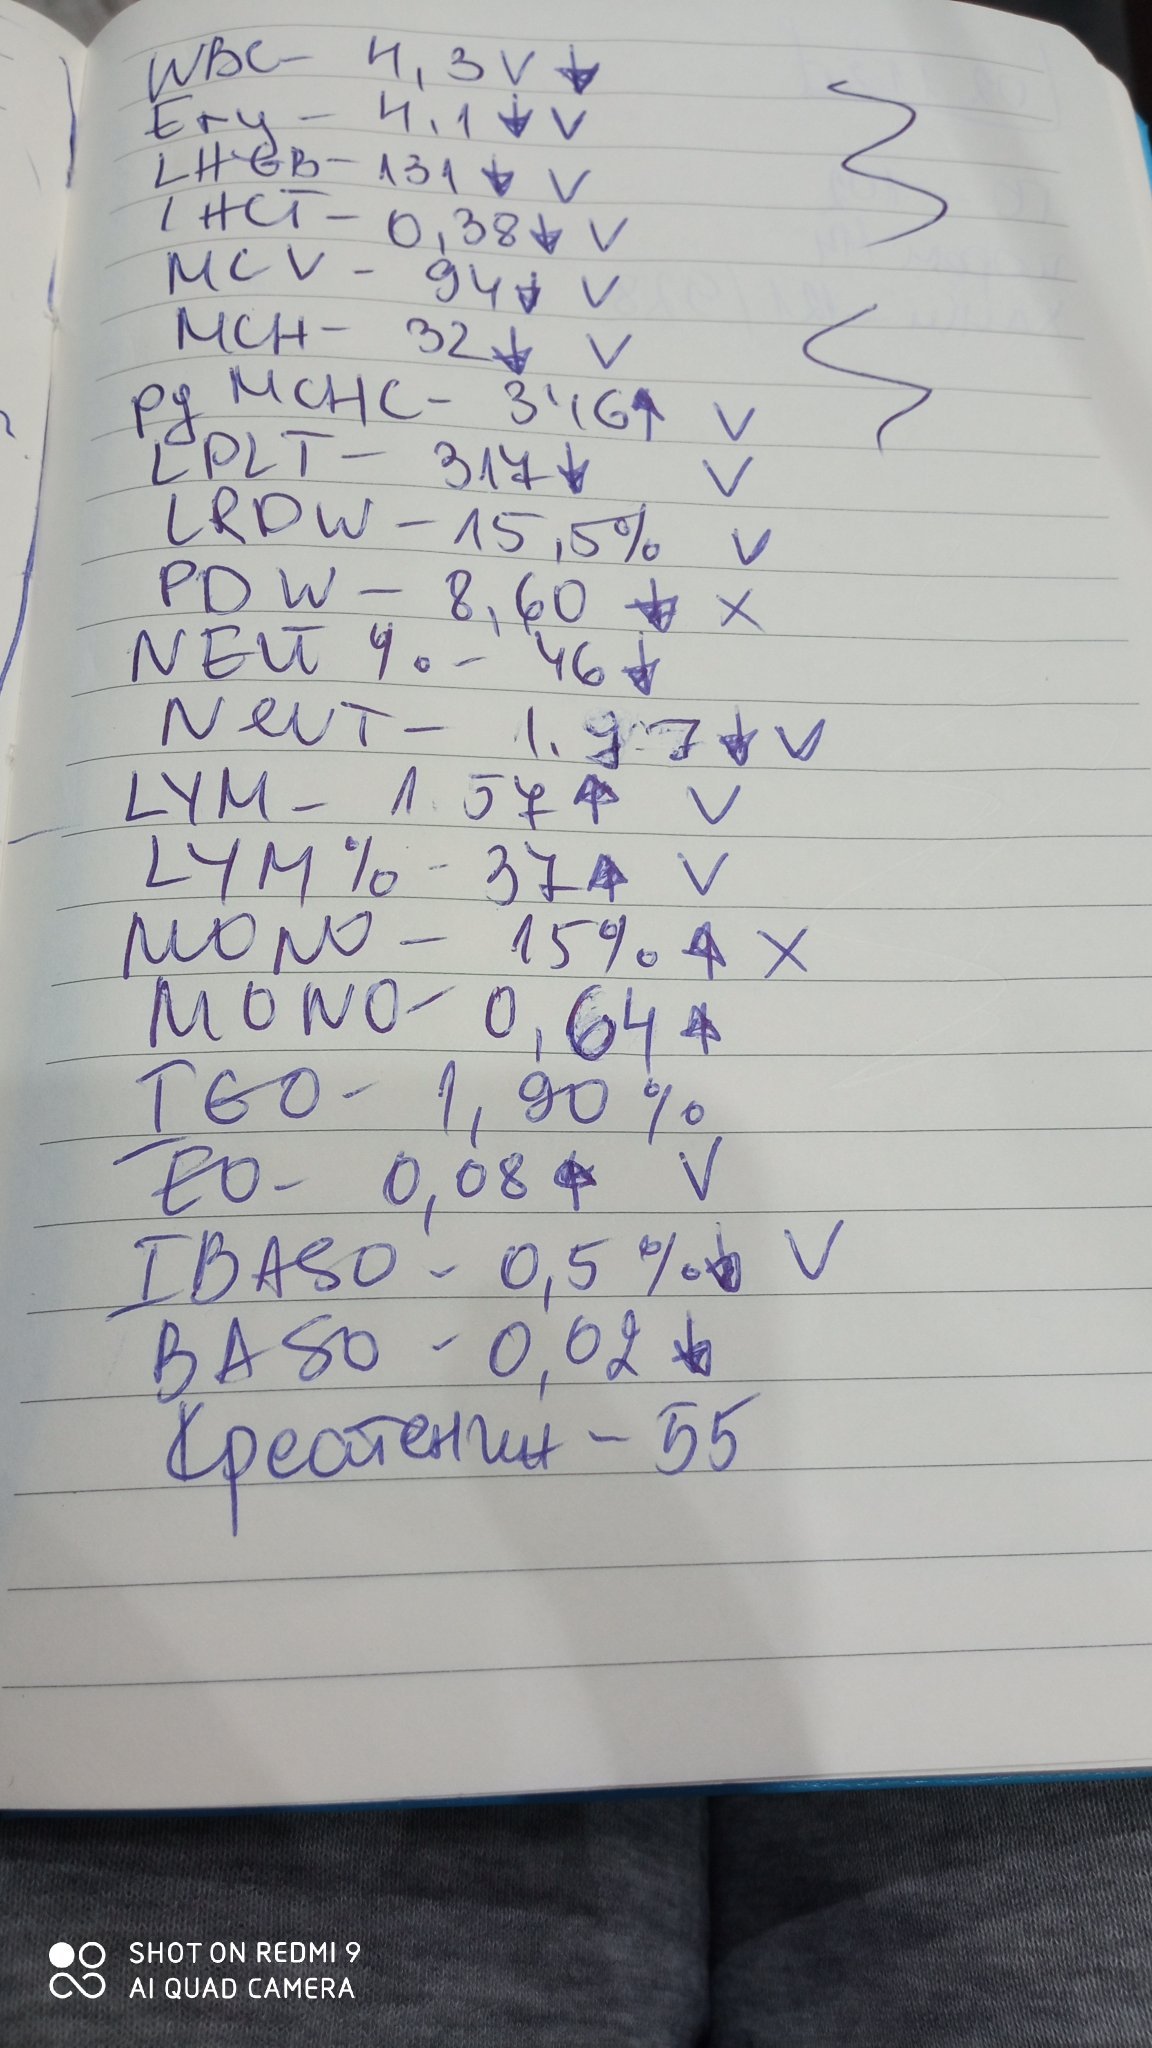 WBC - 4,3 V ↓
Ery - 4.1 ↓ V
LHGB - 131 ↓ V
LHCT - 0,38 ↓ V
MCV - 94 ↓ V
MCH - 32 ↓ V
MCHC - 346 ↑ V
LPLT - 317 ↓ V
LRDW - 15,5% V
PDW - 8,60 ↓ X
NEUT % - 46 ↓
NeUT - 1.97 ↓ V
LYM - 1.57 ↑ V
LYM % - 37 ↑ V
MONO - 15% ↑ X
MONO - 0,64 ↑
IEO - 1,90 %
EO - 0,08 ↑ V
IBASO - 0,5 % ↓ V
BASO - 0,02 ↓
Креатенин - 55
SHOT ON REDMI 9
AI QUAD CAMERA